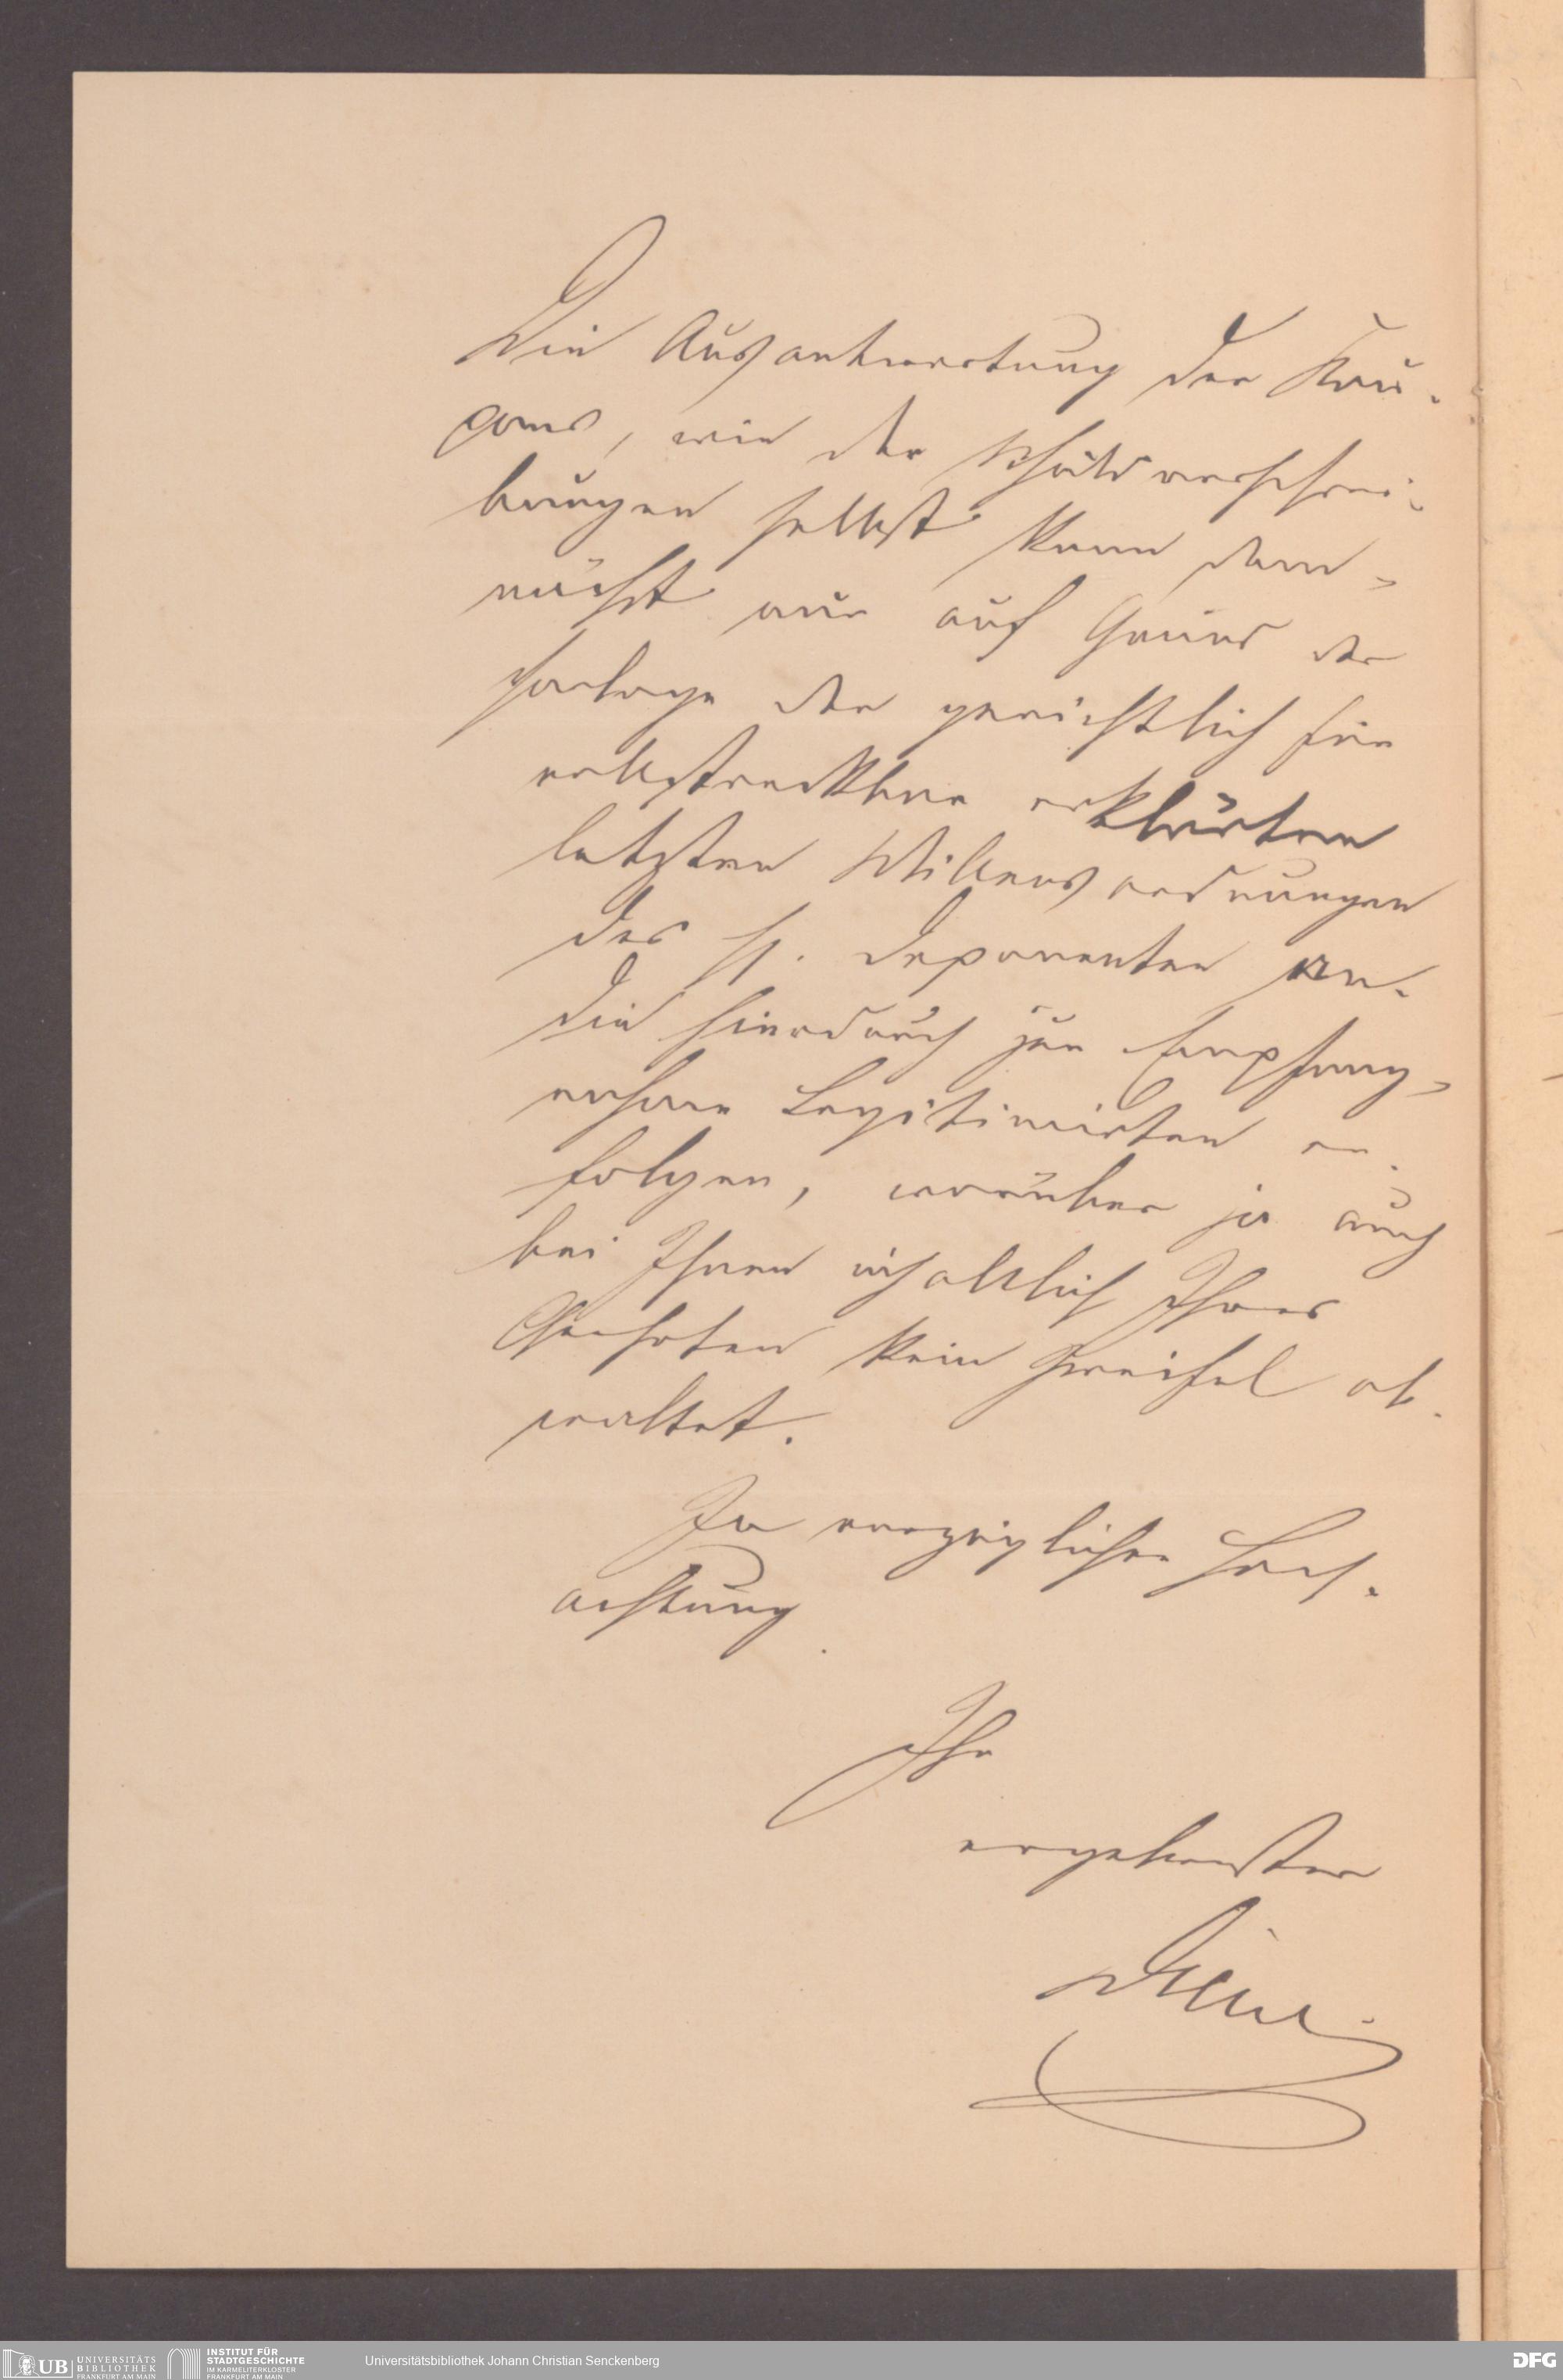 Die Ausantwortung der Kou-
pons, wie der Schuldverschrei-
bungen selbst kann dem-
nächst nur auf Grund der
Vorlage der gerichtlich für
vollstreckbar erklärten
letzten Willensordnungen
des H. Deponenten an
die hierdurch zur Empfang-
nahme Legitimirten er-
folgen, worüber ja auch
bei Ihnen inhaltlich Ihres
Geehrten kein Zweifel ob-
waltet.
In vorzüglicher Hoch-
achtung
Ihr
ergebenster
UB UNIVERSITÄTS BIBLIOTHEK FRANKFURT AM MAIN
INSTITUT FÜR STADTGESCHICHTE IM KARMELITERKLOSTER FRANKFURT AM MAIN
Universitätsbibliothek Johann Christian Senckenberg
DFG